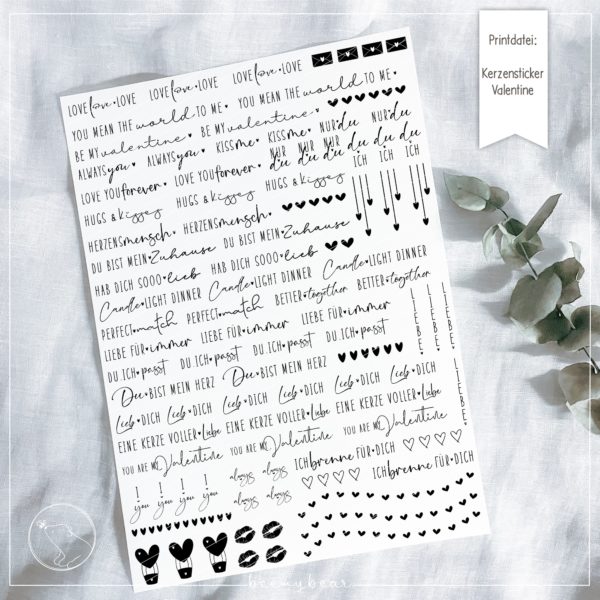 Printdatei:
Kerzensticker
Valentine
LOVE love • LOVE LOVE love • LOVE LOVE love • LOVE
YOU MEAN THE world TO ME♥ YOU MEAN THE world TO ME♥
BE MY valentine♥ BE MY valentine♥
ALWAYS you♥ ALWAYS you♥ KISS me♥ KISS me♥ NUR♥du NUR♥du
NUR du NUR du NUR du du du du
LOVE YOU forever♥ LOVE YOU forever♥ ICH ICH ICH
HUGS & kisses HUGS & kisses HUGS & kisses
HERZENSmensch♥ HERZENSmensch♥
DU BIST MEIN♥Zuhause DU BIST MEIN♥Zuhause
HAB DICH SOOO♥lieb HAB DICH SOOO♥lieb
Candle♥LIGHT DINNER Candle♥LIGHT DINNER Candle♥LIGHT DINNER
PERFECT♥match PERFECT♥match BETTER♥together BETTER♥together
LIEBE FÜR♥immer LIEBE FÜR♥immer LIEBE FÜR♥immer
DU.ICH♥passt DU.ICH♥passt DU.ICH♥passt DU.ICH♥passt
LIEBE♥ LIEBE♥ LIEBE♥
Du♥BIST MEIN HERZ Du♥BIST MEIN HERZ
Lieb♥DICH Lieb♥DICH Lieb♥DICH Lieb♥DICH Lieb♥DICH Lieb♥DICH
LIEBE♥
EINE KERZE VOLLER♥Liebe EINE KERZE VOLLER♥Liebe EINE KERZE VOLLER♥Liebe
YOU ARE MY Valentine YOU ARE MY Valentine YOU ARE MY Valentine
ICH brenne FÜR♥DICH
I you I you I you I you always always
always always
ICH brenne FÜR♥DICH
beemybear